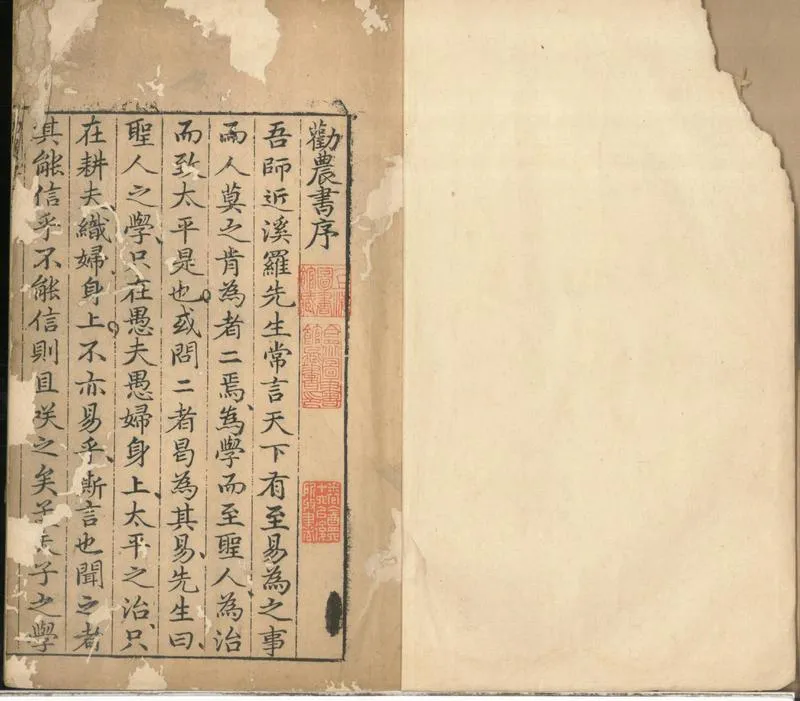 勸農書序
吾師近溪羅先生常言天下有至易為之事
而人莫之肯為者二焉為學而至聖人為治
而致太平是也或問二者曷為其易先生曰
聖人之學只在愚夫愚婦身上太平之治只
在耕夫織婦身上不亦易乎斯言也聞之者
其能信乎不能信則且咲之矣子之學